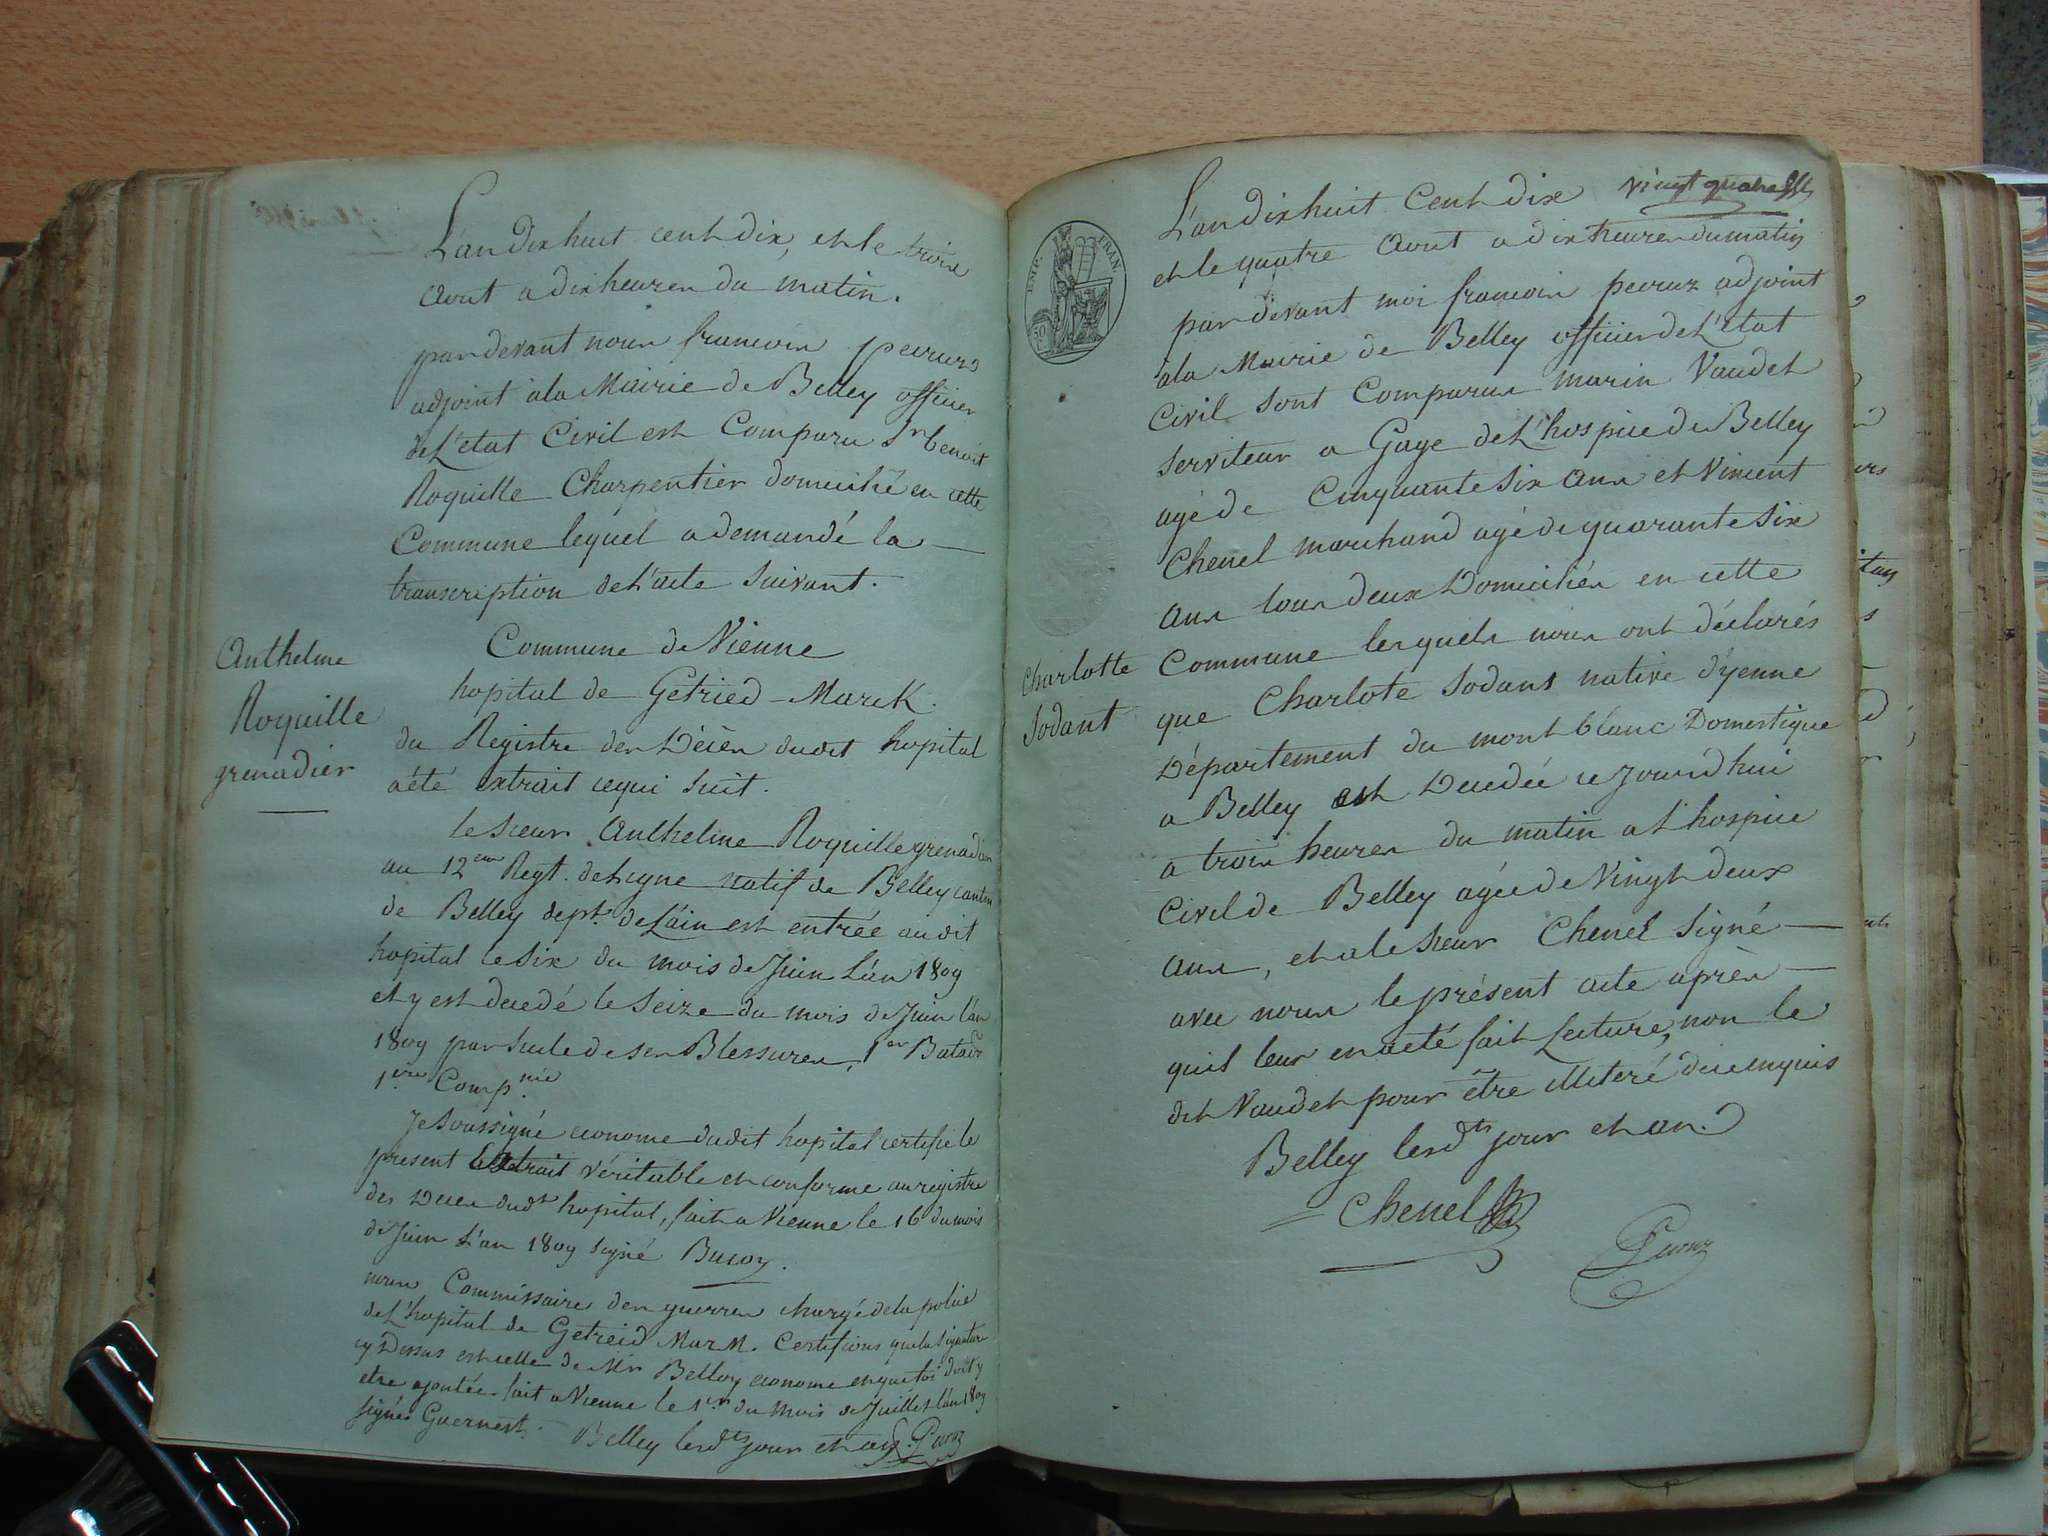 L'an dix huit cent dix, et le trois
Aout a dix heures du matin.
pardevant nous francois peruz
adjoint a la Mairie de Belley officier
de L'etat Civil est Comparu Sr. benoit
Roquille Charpentier domicilié en cette
Commune lequel a demandé la
transcription de L'acte Suivant.
Commune de Vienne
hopital de Getried-Marck.
Anthelme
Roquille
grenadier
du Registre des Décès dudit hopital
a été extrait ce qui Suit.
le Sieur Anthelme Roquille grenadier
au 12eme Regt. de Ligne natif de Belley canton
de Belley dept. de L'ain est entrée audit
hopital le Six du mois de Juin L'an 1809
et y est decedé le Seize du mois de Juin l'an
1809 par Suite de ses Blessures, 1er Bataon
1ere Compnie
Je Soussigné econome dudit hopital certifie le
present Extrait véritable et conforme au registre
des Deces dudt hopital, fait a Vienne le 16 du mois
de Juin L'an 1809 Signé Bucoy.
nous Commissaire des guerres chargé de la police
de L'hopital de Getreid Mark. Certifions que la Signature
cy Dessus est celle de Mr Belloy econome en que foi doit y
etre ajoutée. fait a Vienne le 1er du Mois de Juillet L'an 1809
Signé Guernest. Belley lesdts jour et an. Peruz
vingt quatre
EMP. FRAN.
50
L'an dix huit Cent dix
et le quatre Aout a dix heures du matin
par devant moi francois peruz adjoint
a la Mairie de Belley officier de L'etat
Civil Sont Comparus marin Vaudet
Serviteur a Gage de L'hospice de Belley
agé de Cinquante Six Ans et Vincent
Chenel marchand agé de quarante Six
Ans tous deux Domiciliés en cette
Charlotte
Sodant
Commune lesquels nous ont déclarés
que Charlote Sodant native d'yenne
Département du mont blanc Domestique
a Belley est Decedée ce Jourd'hui
a trois heures du matin a L'hospice
Civil de Belley agée de Vingt deux
Ans, et a le Sieur Chenel Signé
avec nous le présent acte après
qu'il leur en a eté fait Lecture, non le
dit Vaudet pour être illiteré de ce enquis
Belley lesdts jour et an.
Chenel
Peruz